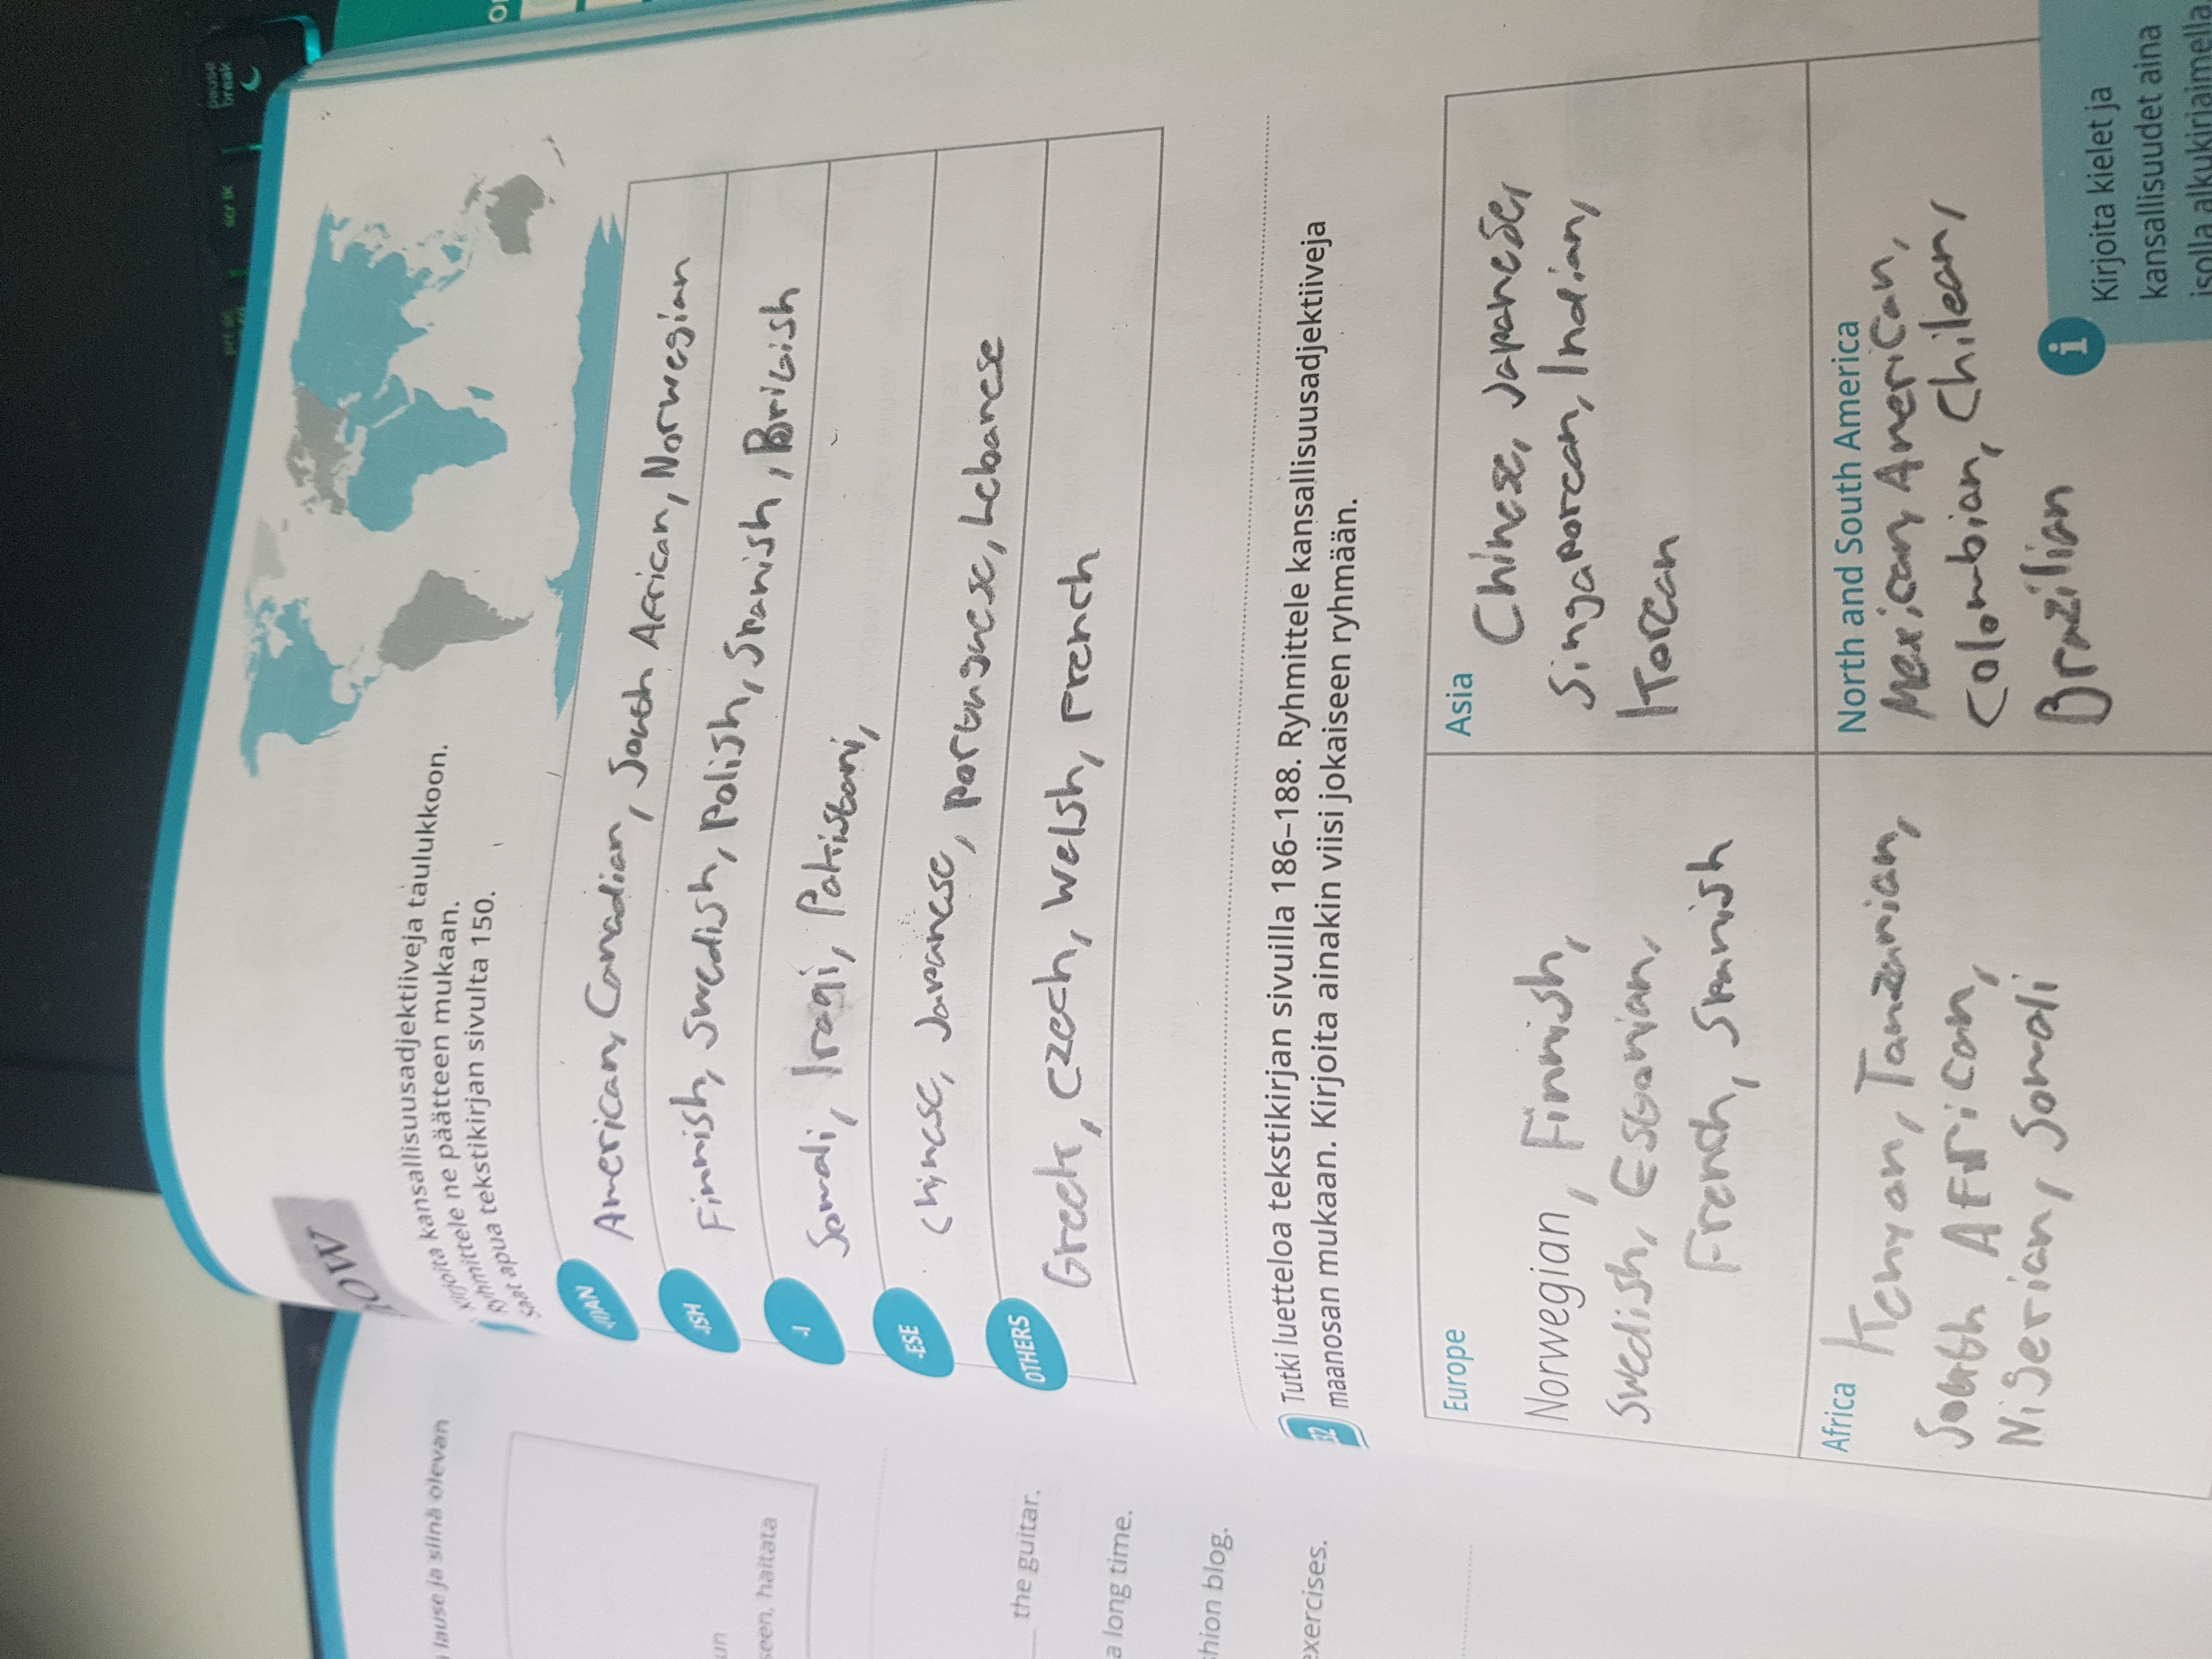 pause
break
scr lk
OW
Kirjoita kansallisuusadjektiiveja taulukkoon.
Ryhmittele ne päätteen mukaan.
Saat apua tekstikirjan sivulta 150.
-(I)AN
American, Canadian, South African, Norwegian
-ISH
Finnish, Swedish, Polish, Spanish, British
-I
Somali, Iraqi, Pakistani,
-ESE
Chinese, Japanese, Portuguese, Lebanese
OTHERS
Greek, Czech, Welsh, French
32
Tutki luetteloa tekstikirjan sivuilla 186–188. Ryhmittele kansallisuusadjektiiveja
maanosan mukaan. Kirjoita ainakin viisi jokaiseen ryhmään.
Europe
Norwegian, Finnish,
Swedish, Estonian,
French, Spanish
Asia
Chinese, Japanese,
Singaporean, Indian,
Korean
Africa
Kenyan, Tanzanian,
South African,
Nigerian, Somali
North and South America
Mexican, American,
Colombian, Chilean,
Brazilian
i
Kirjoita kielet ja
kansallisuudet aina
isolla alkukirjaimella.
lause ja siinä olevan
un
seen, haitata
the guitar.
a long time.
shion blog.
exercises.